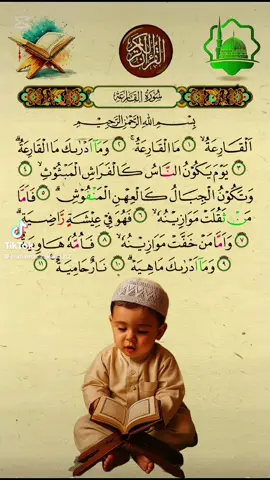 القرآن الكريم
سُورَةُ القَارِعَة
بِسْمِ اللَّهِ الرَّحْمَٰنِ الرَّحِيمِ
ٱلْقَارِعَةُ ١ مَا ٱلْقَارِعَةُ ٢ وَمَآ أَدْرَىٰكَ مَا ٱلْقَارِعَةُ
٣ يَوْمَ يَكُونُ ٱلنَّاسُ كَٱلْفَرَاشِ ٱلْمَبْثُوثِ ٤
وَتَكُونُ ٱلْجِبَالُ كَٱلْعِهْنِ ٱلْمَنفُوشِ ٥ فَأَمَّا
مَن ثَقُلَتْ مَوَٰزِينُهُۥ ٦ فَهُوَ فِى عِيشَةٍ رَّاضِيَةٍ
٧ وَأَمَّا مَنْ خَفَّتْ مَوَٰزِينُهُۥ ٨ فَأُمُّهُۥ هَاوِيَةٌ
٩ وَمَآ أَدْرَىٰكَ مَا هِيَهْ ١٠ نَارٌ حَامِيَةٌۢ ١١
TikTok